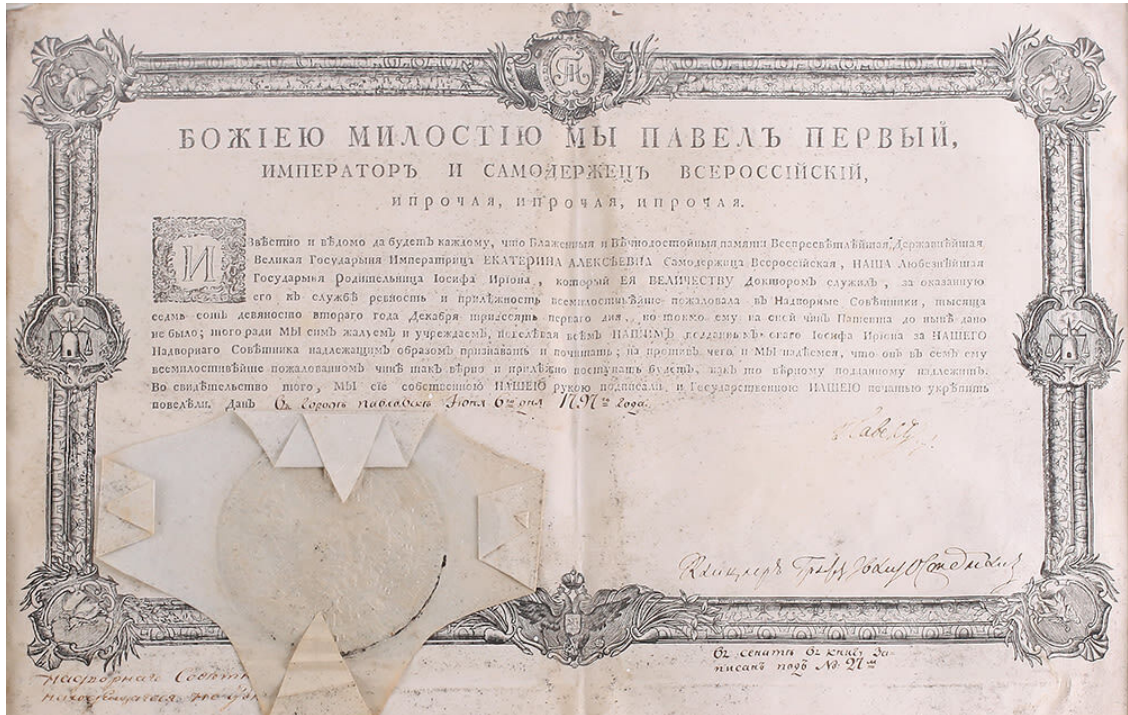 БОЖІЕЮ МИЛОСТІЮ МЫ ПАВЕЛЪ ПЕРВЫЙ,
ИМПЕРАТОРЪ И САМОДЕРЖЕЦЪ ВСЕРОССІЙСКІЙ,
ИПРОЧАЯ, ИПРОЧАЯ, ИПРОЧАЯ.
Извѣстно и вѣдомо да будетъ каждому, что Блаженныя и Вѣчнодостойныя памяти Всепресвѣтлѣйшая, Державнѣйшая
Великая Государыня Императрица ЕКАТЕРИНА АЛЕКСѢЕВНА Самодержица Всероссійская, НАША Любезнѣйшая
Государыня Родительница Іосифа Иріона, который ЕЯ ВЕЛИЧЕСТВУ Докторомъ служилъ, за оказанную
его къ службѣ ревность и прилѣжность всемилостивѣйше пожаловала въ Надворные Совѣтники, тысяща
седмь сотъ девяносто втораго года Декабря тридесять перваго дня, но токмо ему на оной чинъ Патента до нынѣ дано
не было; того ради МЫ симъ жалуемъ и учреждаемъ, повелѣвая всѣмъ НАШИМЪ подданнымъ онаго Іосифа Иріона за НАШЕГО
Надворнаго Совѣтника надлежащимъ образомъ признавать и почитать; на противъ чего и МЫ надѣемся, что онъ въ семъ ему
всемилостивѣйше пожалованномъ чинѣ такъ вѣрно и прилѣжно поступать будетъ, какъ то вѣрному подданному надлежитъ.
Во свидѣтельство того, МЫ сіе собственною НАШЕЮ рукою подписали, и Государственною НАШЕЮ печатью укрѣпить
повелѣли. Данъ въ городѣ Павловскѣ Іюня 6го дня 1797го года.
Павелъ
Канцлеръ Графъ
въ сенатѣ въ книгу за
писанъ подъ № 97мъ
надворнаго Совѣтн